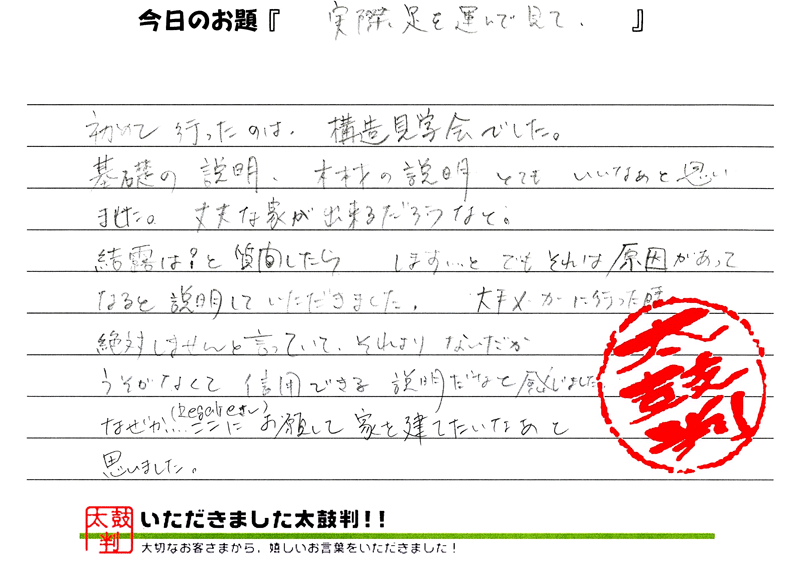 今日のお題『 実際、足を運んで見て、 』
初めて 行ったのは、構造見学会でした。
基礎の 説明、木材の説明 とても いいなぁと思い
ました。 丈夫な家が 出来るだろうなと。
結露は?と質問したら しますぃと でもそれは原因があって
なると説明していただきました。 大手メーカーに行った時
絶対しませんと言っていて、それより ないだか
うそがなくて 信用できる 説明だなと感じました
なぜか…ここに(Regaloさん)お願いして 家を建てたいなぁと
思いました。
太鼓判
太鼓判 いただきました太鼓判!!
大切なお客さまから、嬉しいお言葉をいただきました!